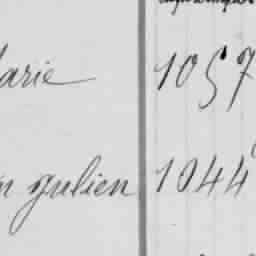 arie 1057
n julien 1044